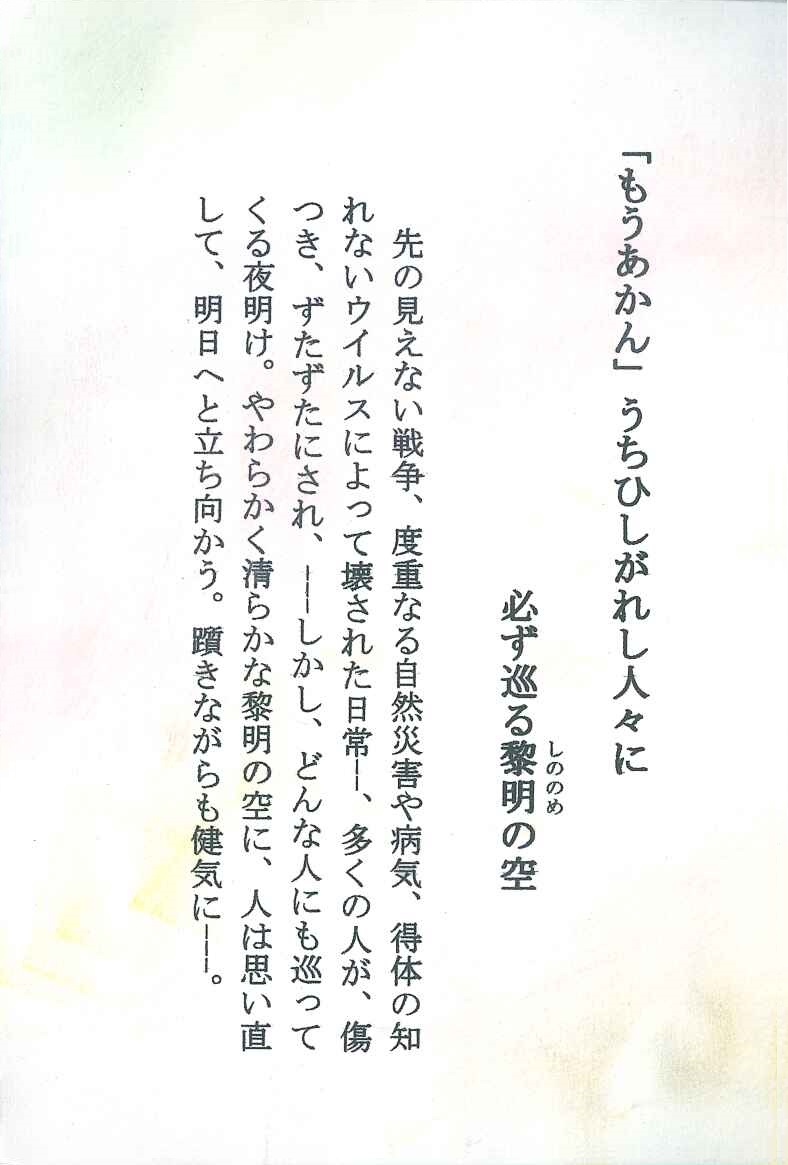 「もうあかん」うちひしがれし人々に
必ず巡る黎明の空
しののめ
先の見えない戦争、度重なる自然災害や病気、得体の知
れないウイルスによって壊された日常―、多くの人が、傷
つき、ずたずたにされ、――しかし、どんな人にも巡って
くる夜明け。やわらかく清らかな黎明の空に、人は思い直
して、明日へと立ち向かう。躓きながらも健気に――。